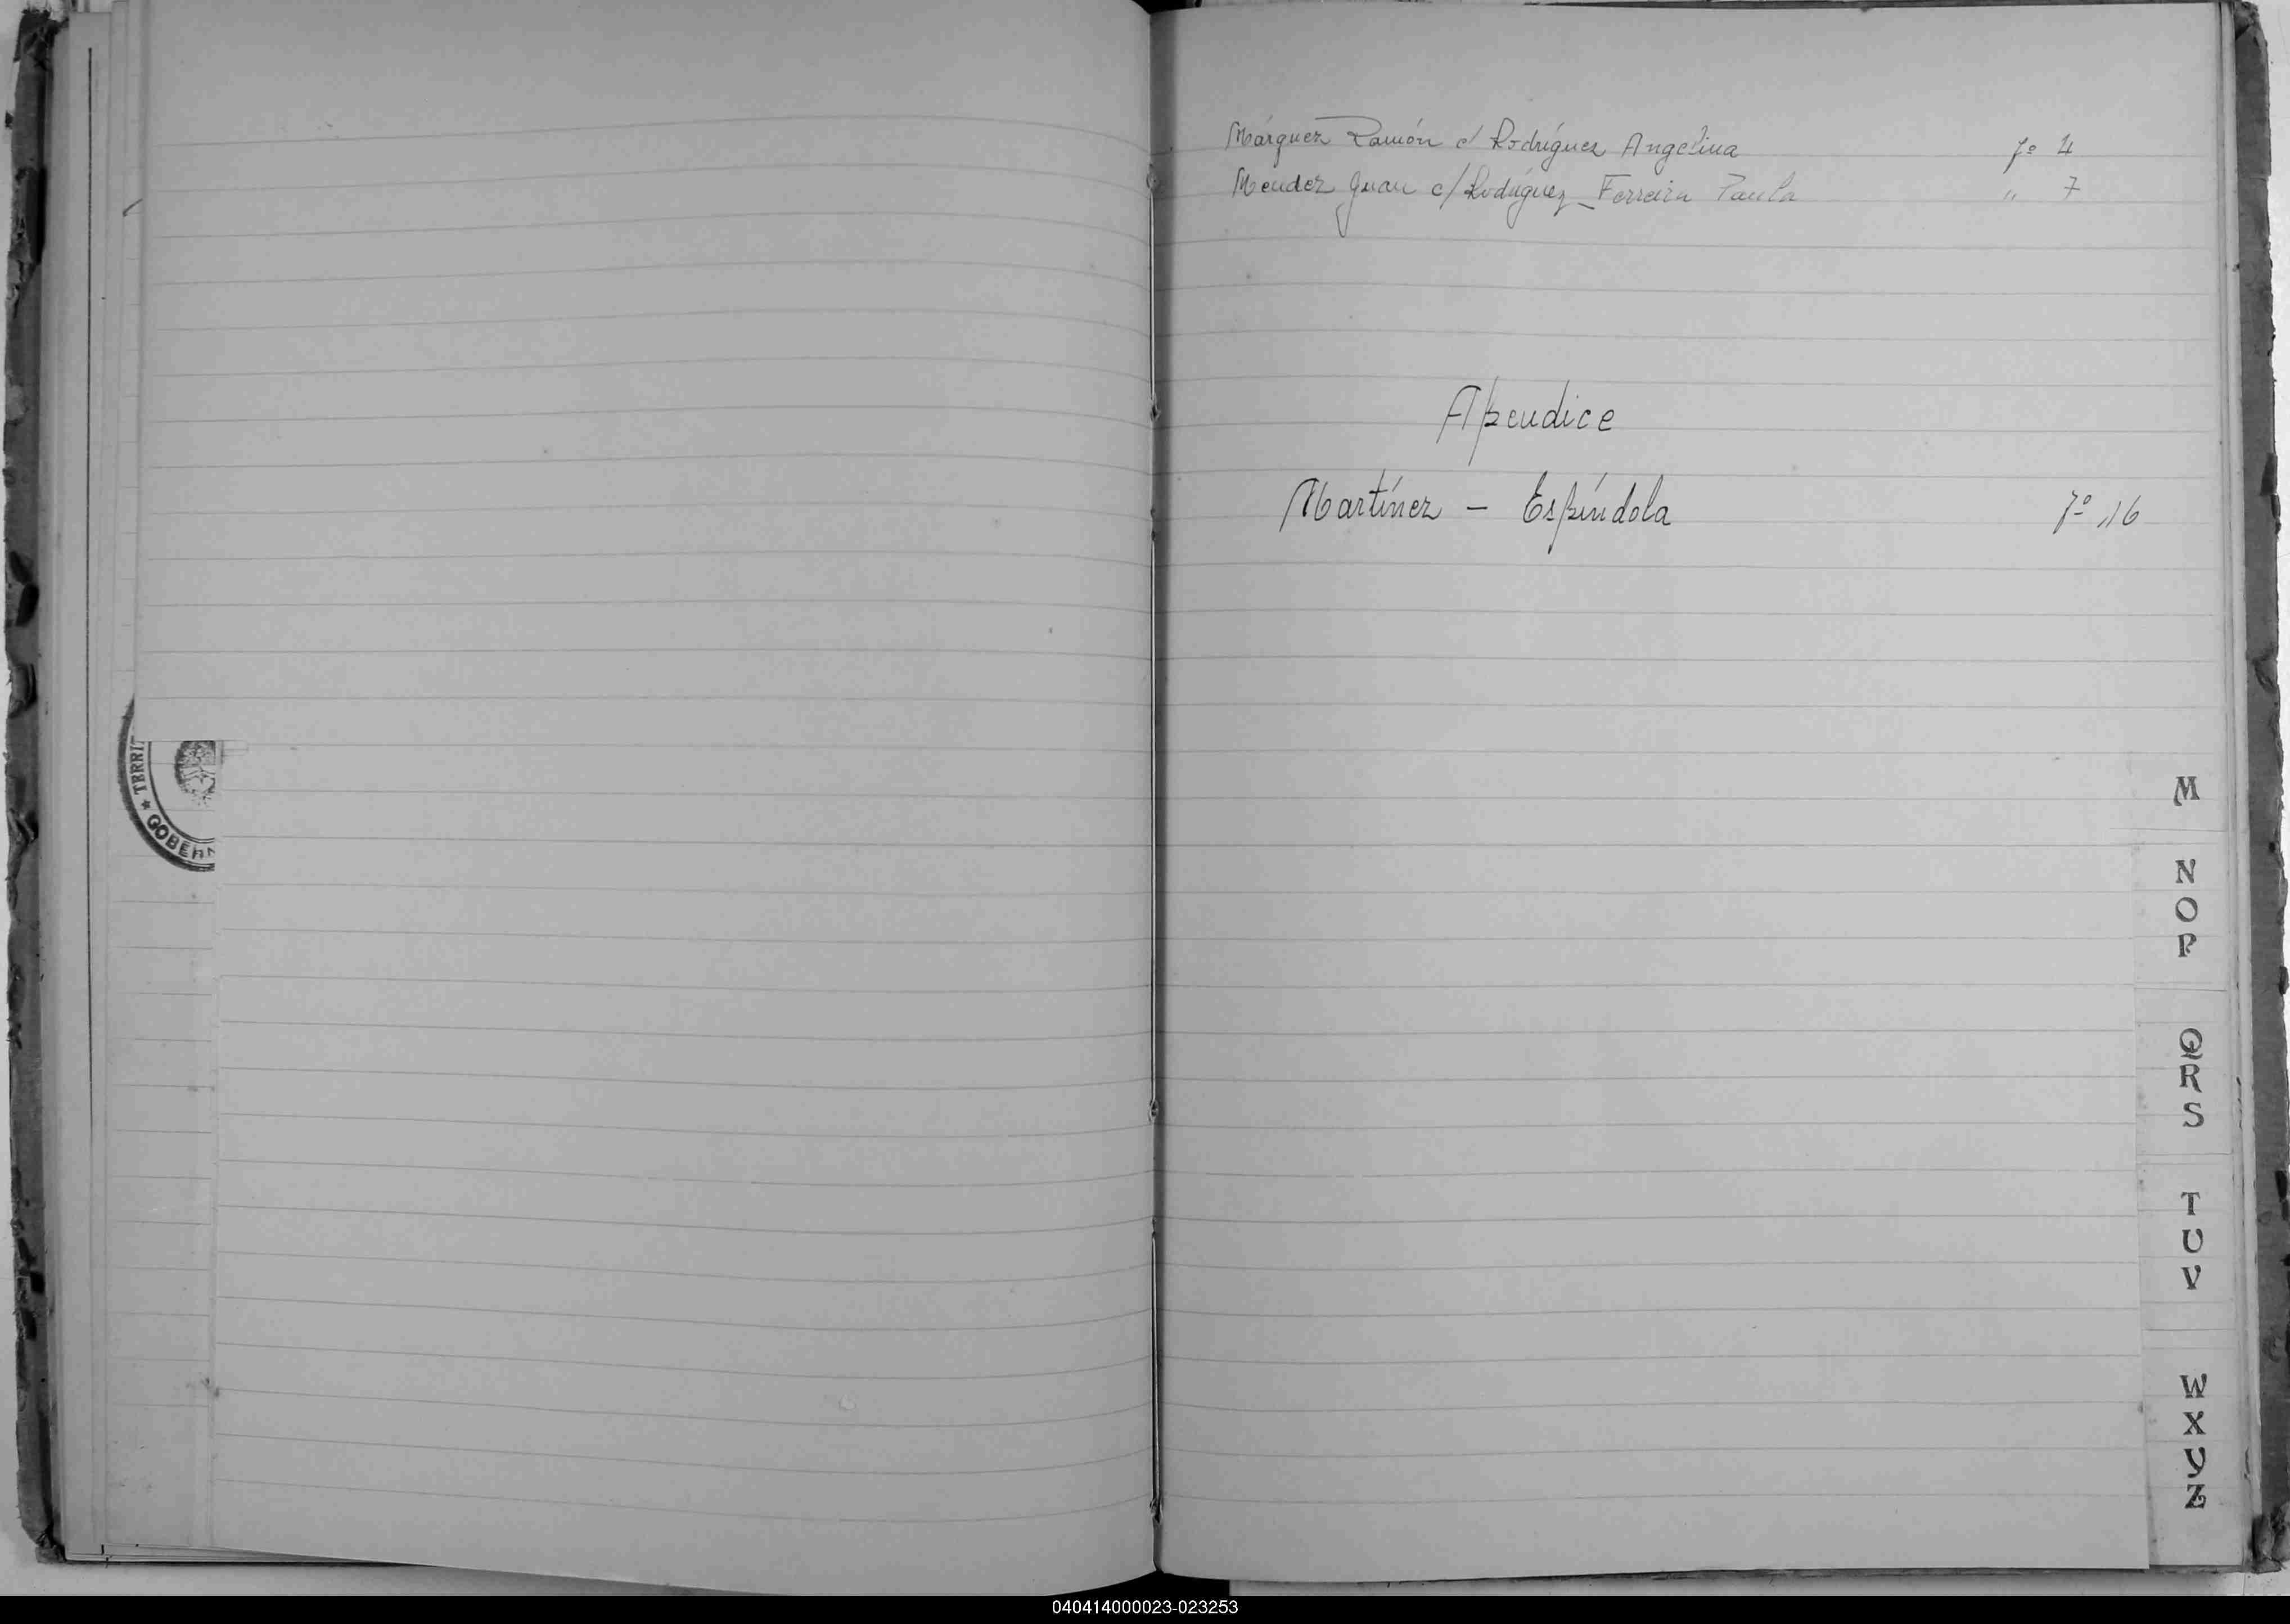 Márquez Ramón c/ Rodríguez Angelina fº 4
Mendez Juan c/ Rodríguez Ferreira Paula " 7
Apendice
Martínez - Espíndola fº 16
* TERRI
GOBERN
M
N
O
P
Q
R
S
T
U
V
W
X
Y
Z
040414000023-023253